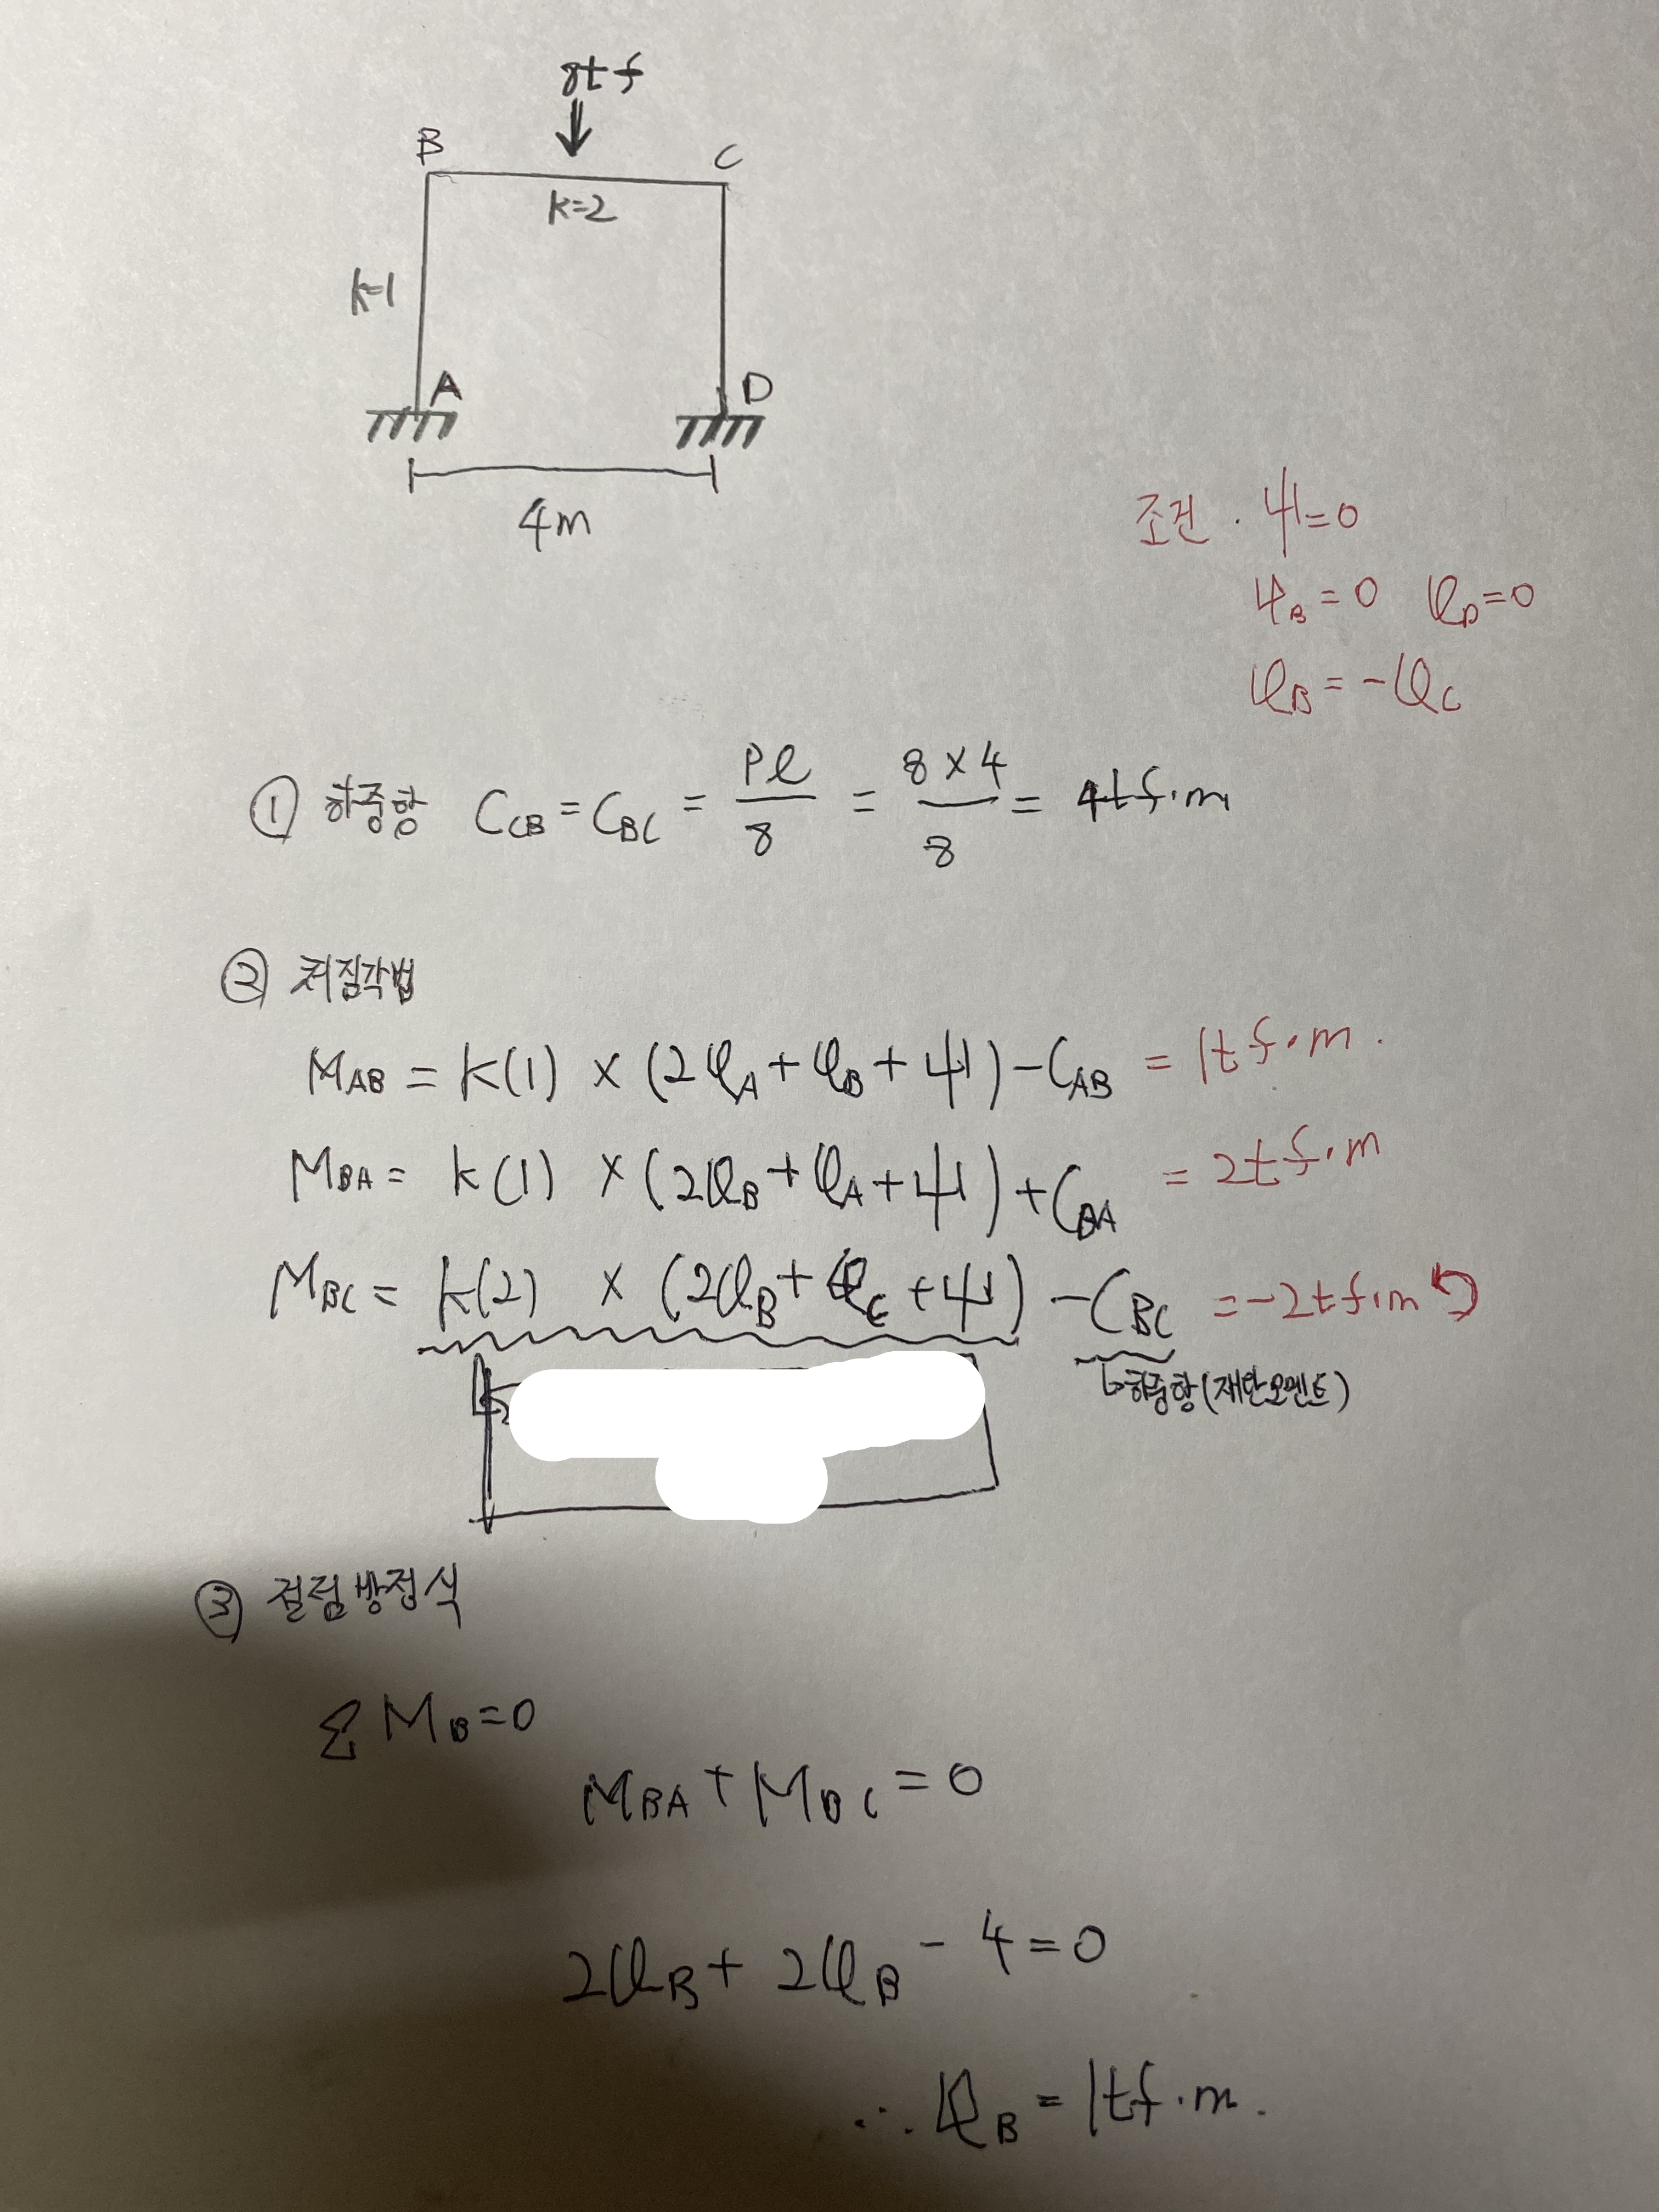 8tf
B
C
k=2
k=1
A
D
4m
조건 · ψ=0
φ_B=0 φ_D=0
φ_B=-φ_C
① 하중항 C_CB=C_BC = Pℓ/8 = 8×4/8 = 4tf·m
② 처짐각법
M_AB = k(1) × (2φ_A+φ_B+ψ)-C_AB = 1tf·m.
M_BA = k(1) × (2φ_B+φ_A+ψ)+C_BA = 2tf·m
M_BC = k(2) × (2φ_B+φ_C+ψ) -C_BC =-2tf·m
↳하중항(재단모멘트)
③ 절점방정식
ΣM_B=0
M_BA+M_BC=0
2φ_B+2φ_B-4=0
∴ φ_B=1tf·m.